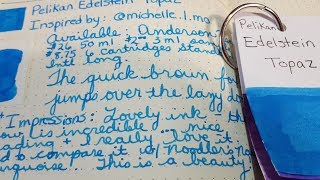 Pelikan Edelstein Topaz
Inspired by: @michelle.l.mo
Available: Anderson
$26 50 ml $2 3 ml
$75 6 cartridges standard
Intl long
The quick brown fo
jumps over the lazy do
Impression: Lovely ink th
is incredible nice
+ I really love it
to compare it w/ Noodlers
This is a beauty
Pelikan
Edelstein
Topaz